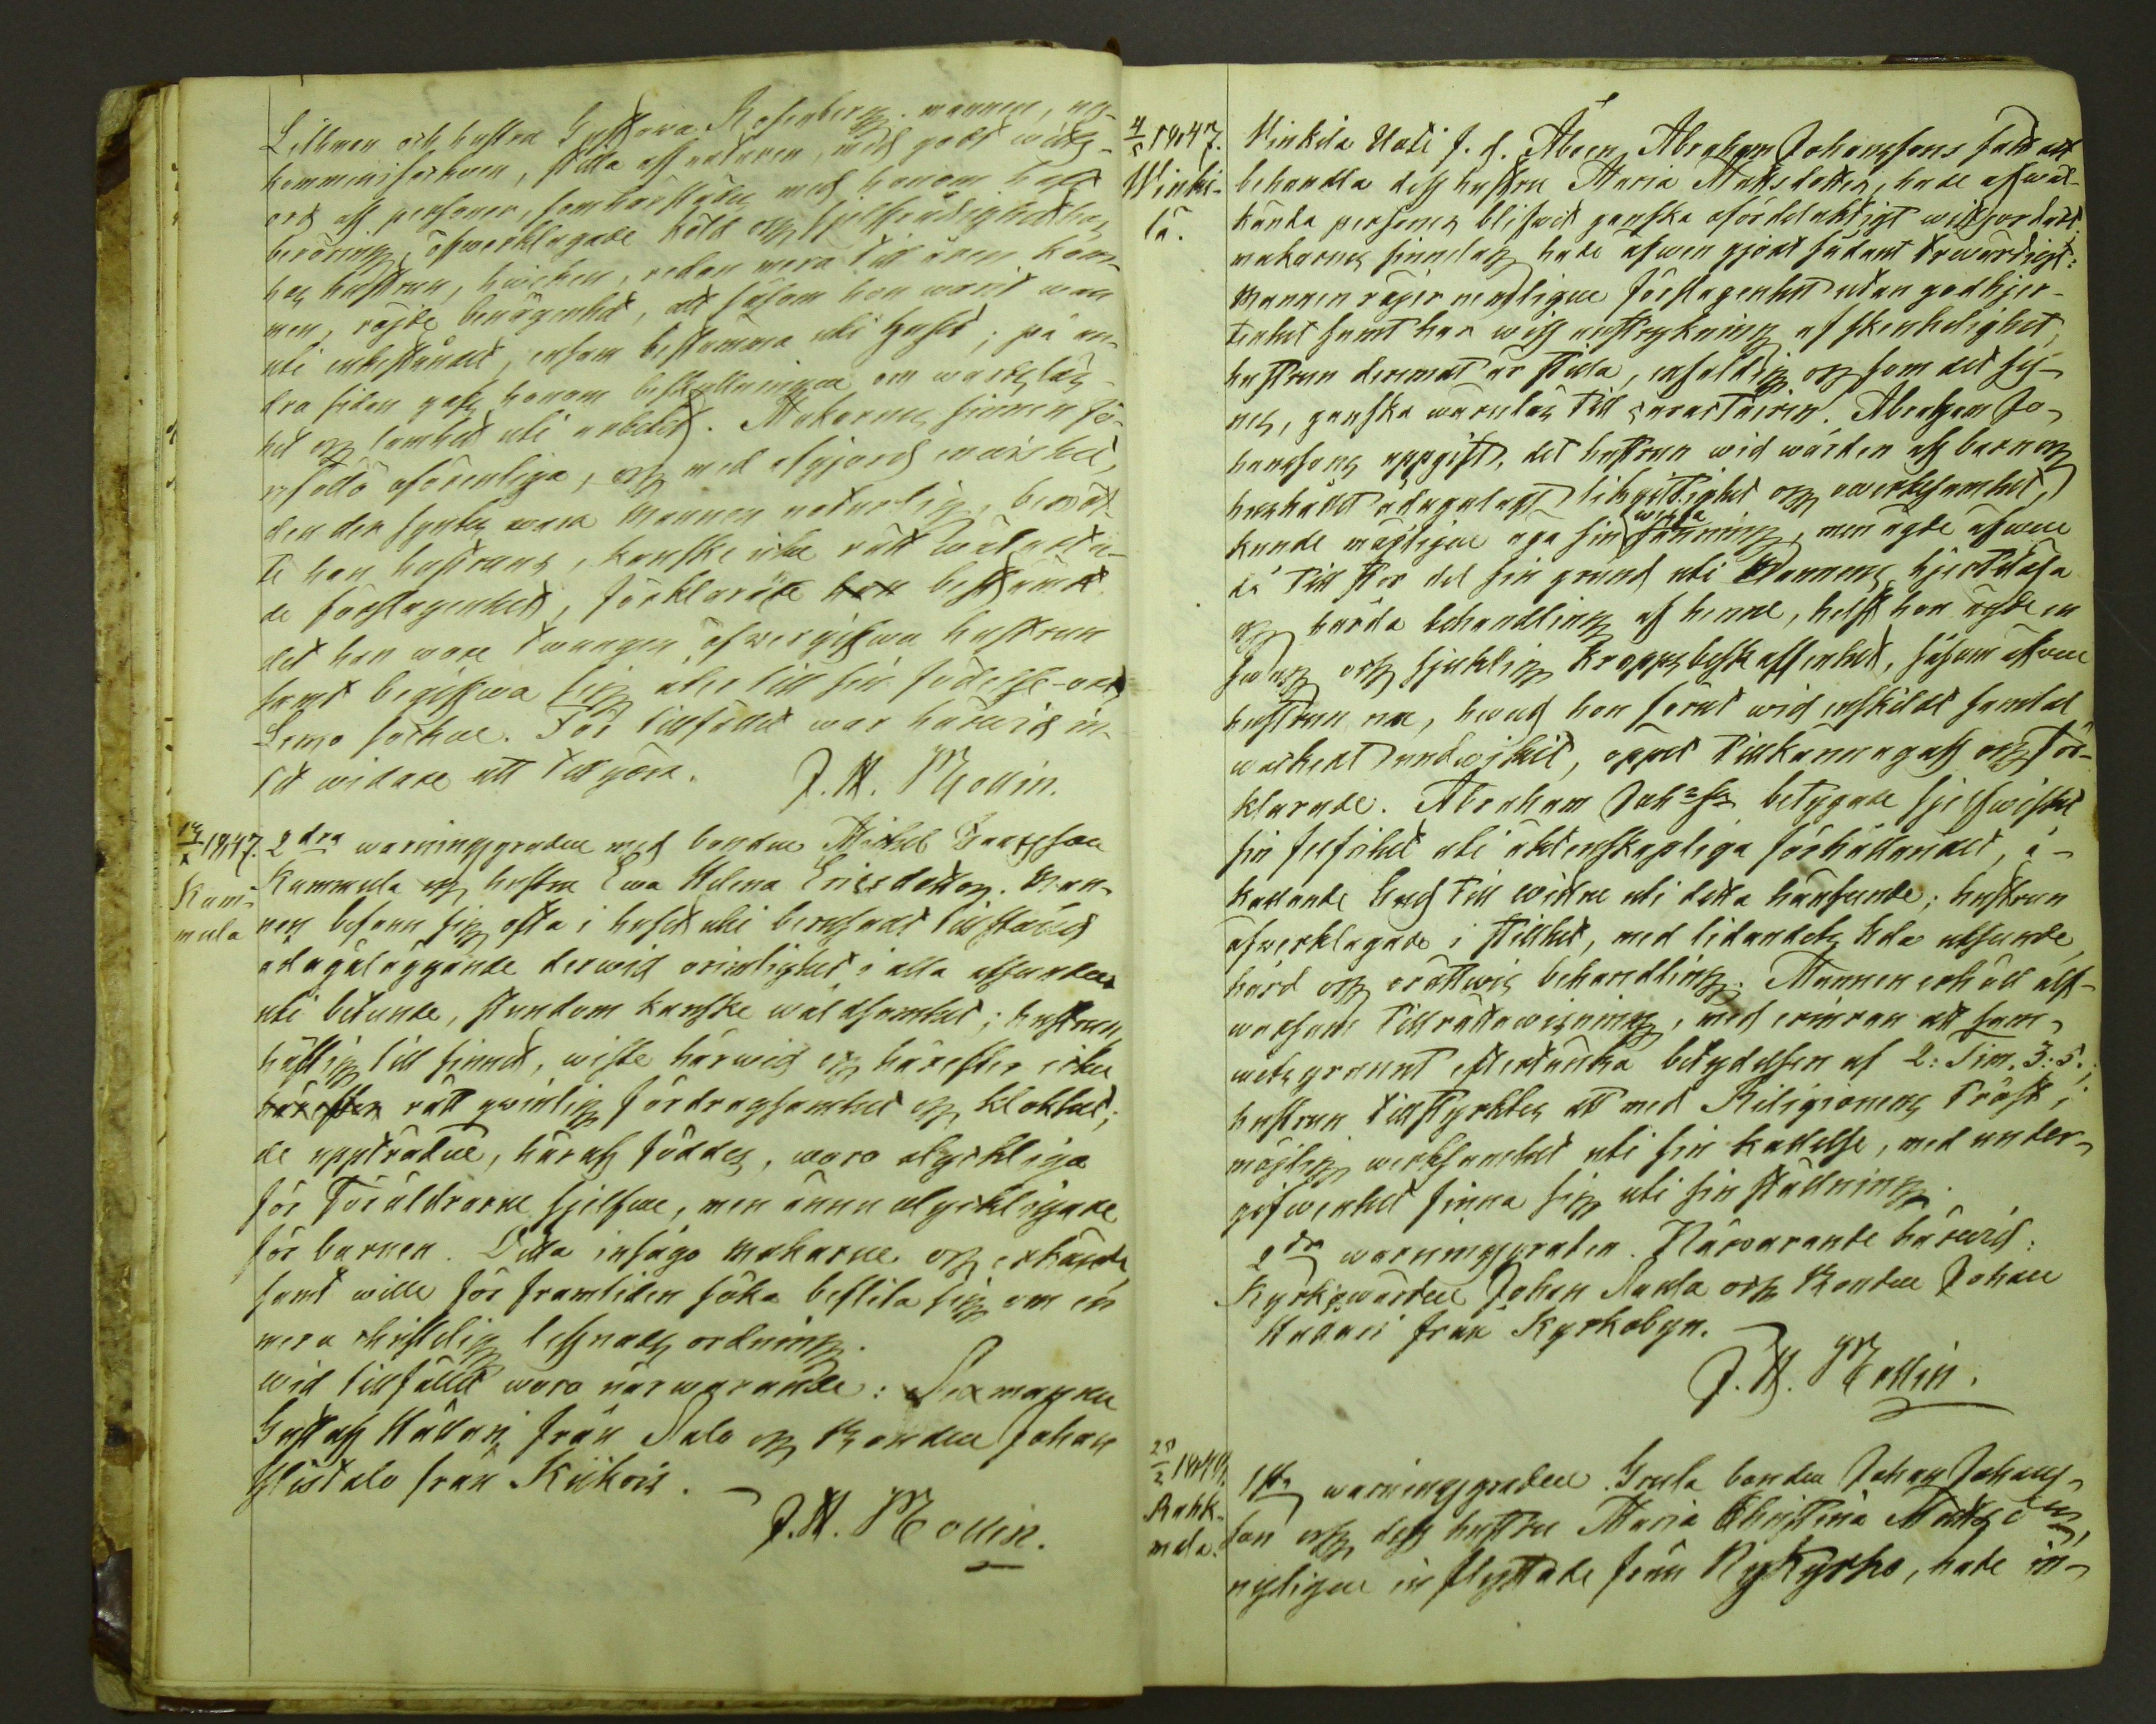 Lillman och hustru Gustava Rosenberg. mannen, ny-
kommen i socknen, stilla af naturen, med godt witts-
ord af personer, som härstädes med honom haft
beröring, öfwerklagade köld och sjelfrådighet hos
hos hustrun, hwilken, redan mera till åren kom-
men, röjde benägenhet, att såsom hon warit wan
uti enkeståndet, ensam bestämma uti huset; på an-
dra sidan gafs honom beskyllningen om warslös-
het och lamhet uti arbetet. Makarnes sinnen så-
oförenliga, och med afgjord
den der syntes wara Mannen naturlig, bemöt-
te han hustruns, kanske icke rätt wälbetänk-
de förslagenhet, förklarade han bestämdt
det han wore twungen öfwergifwa hustrun
samt begifwa sig åter till sin födelse-ort
Lemo socken. För tillfället war härwid in-
tet widare att tillgöra.
J. H. Mollin.
1847.
Kum-
mula
2dra warningsgraden med bonden Michel Isaksson
Kummula och hustru Ewa Helena Ericsdotter. Man-
nen befann sig ofta i huset uti berusadt tillstånd
ådagaläggande derwid orimlighet i alla afseenden
uti beteende, stundom kanske wåldsamhet; hustrun
häftig till sinnet, wiste härwid och härefter icke
härefter rätt qwinlig fördragsamhet och klokhet;
de uppträden, häraf föddes, woro olyckliga
för Föräldrarne sjelfwe, men ännu olyckligare
för barnen. Detta insågo makarne och erkände,
samt wille för framtiden söka beflita sig om en
mera christelig lefnads ordning.
Wid tillfället woro närwarande: Sexmannen
Gustaf Hällari från Salo och Bonden Johan
Ylistalo från Kiikois.
J. H. Mollin.
4/5 1847.
Winki-
lä.
Winkilä Uoti f. d. Åboen Abraham Johanssons sätt att
behandla dess hustru Maria Matsdotter, hade af wäl-
kända personer blifwit ganska ofördelaktigt witsordadt.
makarnes sinnelag hade äfwen gjort sådant trowärdigt:
Mannen röjer nemligen förslagenhet utan godhjer-
tenhet samt har wiss anstrykning af skenhelighet,
hustrun deremot är stilla, enfaldig och som det sy-
nes, ganska wärnlös till caracteren. Abraham Jo-
hanssons uppgift, det hustrun wid wården af barn och
hushållet ådagalagt likgiltighet och owerksamhet,
kunde möjligen äga sin wissa sanning, men ägde äfwen
då till stor del sin grund uti Mannens hjertlösa
och hårda behandling af henne, helst hon ägde en
swag och sjuklig kroppsbeskaffenhet, såsom äfwen
hustrun nu, hwad hon förut wid enskildt samtal
warsamt undwikit, öppet tillkännagaf och för-
klarade. Abraham Johss betygade sjelfwishet
sin felfrihet uti äktenskapliga förhållandet, å-
kallande Gud till wittne uti detta hänseende; hustrun
öfwerklagade i stillhet, med lidandets
hård och orättwis behandling. Mannen erhöll all-
warsam tillrättawisning, med erinran att sam-
wetsgrannt eftertänka betydelsen af 2: Tim. 3: 5.;
hustrun tillstyrktes att med Religionens tröst, i
möjlig werksamhet uti sin kallelse, med under-
gifwenhet finna sig uti sin ställning.
2dra warningsgraden. Närwarande härwid:
Kyrkowärden Johan Naula och Bonden Johan
från Kyrkobyn.
J. H. Mollin.
Rahk-
mala.
1sta warningsgraden. Grels bonden Johan Johans-
son och dess hustru Maria Christina Matsd:r,
nyligen in flyttade från Nykyrko, hade in-